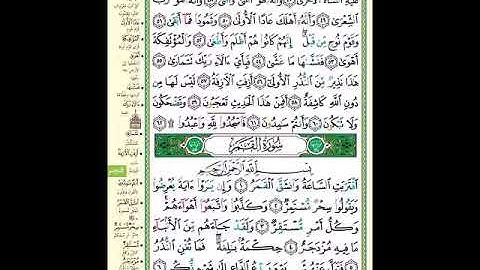 عَلَيْهِ ٱلنَّشْأَةَ ٱلْأُخْرَىٰ ٤٧ وَأَنَّهُۥ هُوَ أَغْنَىٰ وَأَقْنَىٰ ٤٨ وَأَنَّهُۥ هُوَ رَبُّ
ٱلشِّعْرَىٰ ٤٩ وَأَنَّهُۥٓ أَهْلَكَ عَادًا ٱلْأُولَىٰ ٥٠ وَثَمُودَا۟ فَمَآ أَبْقَىٰ ٥١
وَقَوْمَ نُوحٍ مِّن قَبْلُ إِنَّهُمْ كَانُوا۟ هُمْ أَظْلَمَ وَأَطْغَىٰ ٥٢ وَٱلْمُؤْتَفِكَةَ
أَهْوَىٰ ٥٣ فَغَشَّىٰهَا مَا غَشَّىٰ ٥٤ فَبِأَىِّ ءَالَآءِ رَبِّكَ تَتَمَارَىٰ ٥٥
هَٰذَا نَذِيرٌ مِّنَ ٱلنُّذُرِ ٱلْأُولَىٰٓ ٥٦ أَزِفَتِ ٱلْءَازِفَةُ ٥٧ لَيْسَ لَهَا مِن
دُونِ ٱللَّهِ كَاشِفَةٌ ٥٨ أَفَمِنْ هَٰذَا ٱلْحَدِيثِ تَعْجَبُونَ ٥٩ وَتَضْحَكُونَ
وَلَا تَبْكُونَ ٦٠ وَأَنتُمْ سَٰمِدُونَ ٦١ فَٱسْجُدُوا۟ لِلَّهِ وَٱعْبُدُوا۟ ٦٢
سُورَةُ ٱلْقَمَرِ
بِسْمِ ٱللَّهِ ٱلرَّحْمَٰنِ ٱلرَّحِيمِ
ٱقْتَرَبَتِ ٱلسَّاعَةُ وَٱنشَقَّ ٱلْقَمَرُ ١ وَإِن يَرَوْا۟ ءَايَةً يُعْرِضُوا۟
وَيَقُولُوا۟ سِحْرٌ مُّسْتَمِرٌّ ٢ وَكَذَّبُوا۟ وَٱتَّبَعُوٓا۟ أَهْوَآءَهُمْ
وَكُلُّ أَمْرٍ مُّسْتَقِرٌّ ٣ وَلَقَدْ جَآءَهُم مِّنَ ٱلْأَنۢبَآءِ
مَا فِيهِ مُزْدَجَرٌ ٤ حِكْمَةٌۢ بَٰلِغَةٌ فَمَا تُغْنِ ٱلنُّذُرُ
٥ فَتَوَلَّ عَنْهُمْ يَوْمَ يَدْعُ ٱلدَّاعِ إِلَىٰ شَىْءٍ نُّكُرٍ ٦